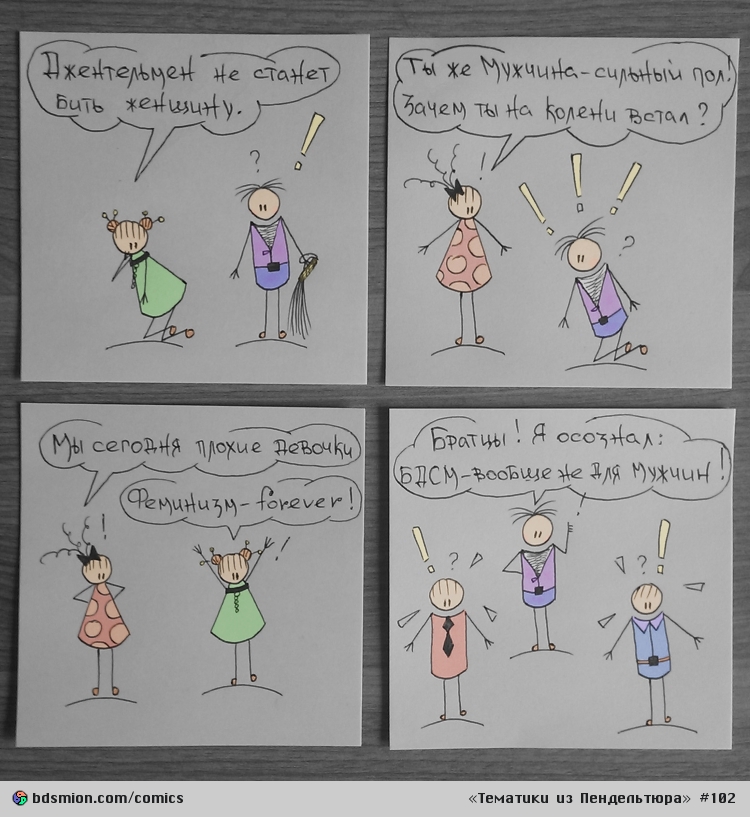 Джентельмен не станет
бить женщину.
?
!
Ты же Мужчина-сильный пол!
Зачем ты на колени встал?
!
! ! !
?
Мы сегодня плохие девочки
Феминизм-forever!
!
!
Братцы! Я осознал:
БДСМ-вообще не для Мужчин!
!
! ?
? !
bdsmion.com/comics
«Тематики из Пендельтюра» #102